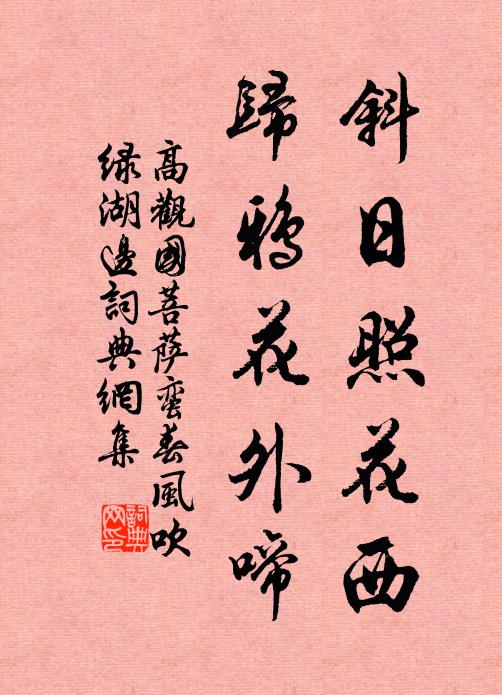 斜日照花西
歸鴉花外啼
高觀國菩薩蠻春風吹
绿湖邊詞典網集
詞典
网印